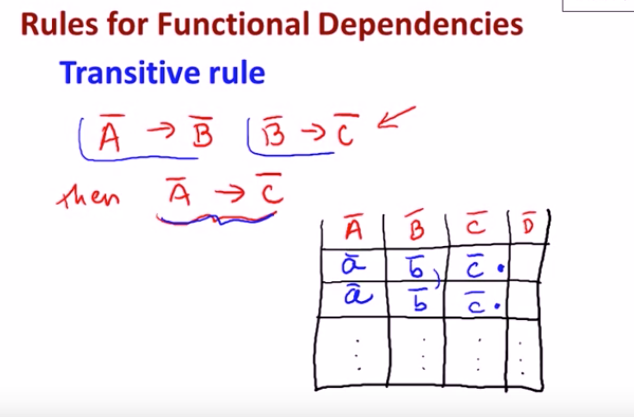 Rules for Functional Dependencies
Transitive rule
A̅ → B̅ B̅ → C̅
then A̅ → C̅
A̅ B̅ C̅ D̅
a̅ b̅ c̅
a̅ b̅ c̅